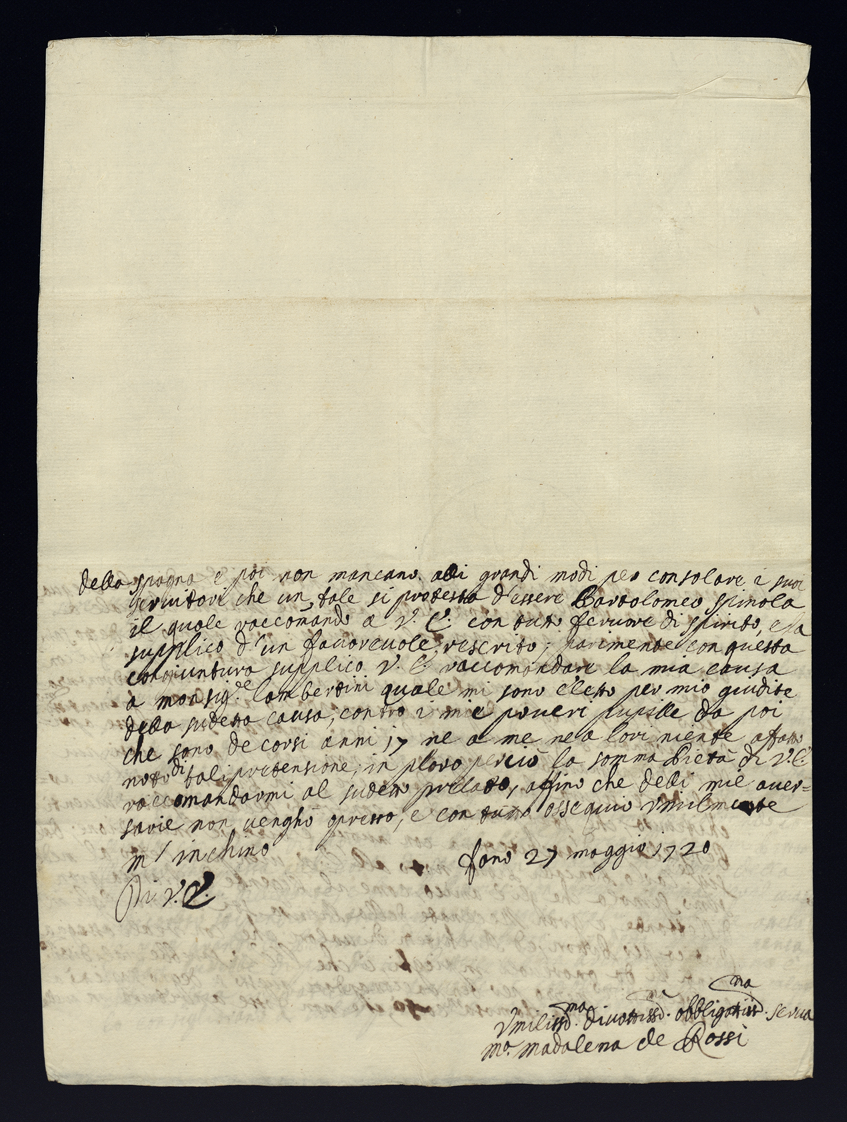 della spagna e poi non mancano alli grandi modi per consolare i suoi
servitori che un tale si protesta d'essere Bartolomeo spinola
il quale raccomando a V. E. con tutto fervore di spirito, e la
supplico d'un favorevole rescrito; parimente con questa
congiuntura supplico V. E. raccomandare la mia causa
a monsig.re lambertini quale mi sono eletto per mio giudice
della sudetta causa, contro i miei poveri pupille da poi
che sono decorsi anni 17 ne a me ne a lori niente affatto
noto di tali pretensione, in ploro perciò la somma Pietà di V. E.
raccomandarmi al sudetto prelato, affino che delli miei auer=
sarie non venghō opresso, e con tutto ossequio vmilmente
m'inchino
fano 27 maggio 1720
Di V. E.
Vmiliss.ma divotiss.ma obbligatiss.ma serva
m.a madalena de Rossi